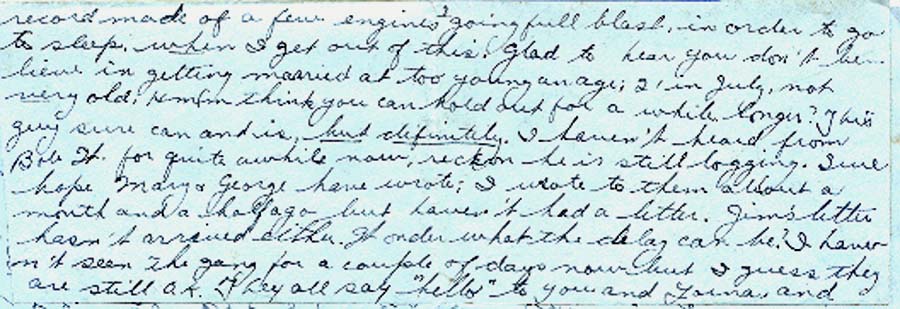 record made of a few engines going full blast, in order to go
to sleep, when I get out of this. Glad to hear you don't be-
lieve in getting married at too young an age; 21 in July, not
very old; Hmmm think you can hold out for a while longer? This
guy sure can and is, but definitely. I haven't heard from
Bob H. for quite awhile now, reckon he is still logging. Sure
hope Mary & George have wrote; I wrote to them about a
month and a half ago but haven't had a letter. Jim's letter
hasn't arrived either. Wonder what the delay can be? I haven-
n't seen the gang for a couple of days now but I guess they
are still O.K. They all say "hello" to you and and